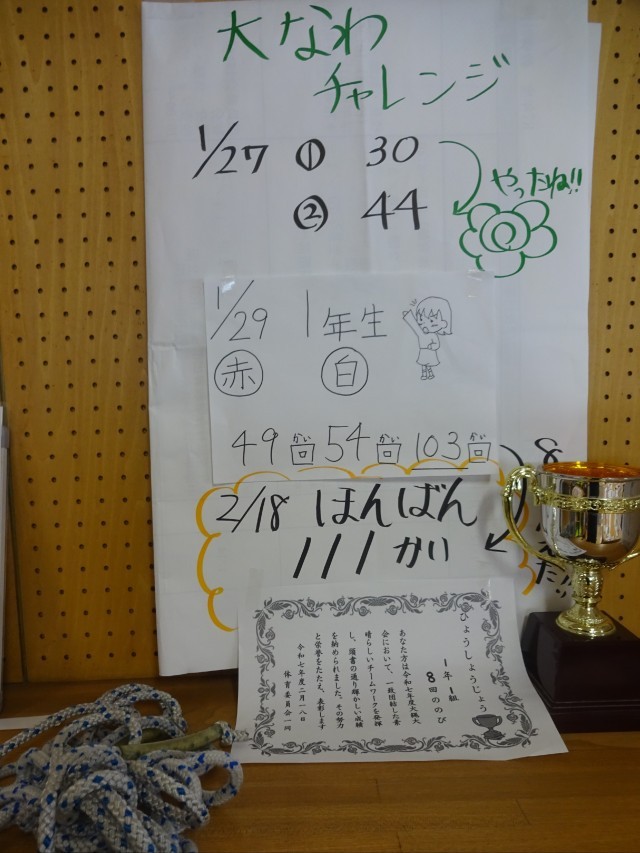 大なわ
チャレンジ
1/27 ① 30
② 44
やったね!!
1/29 1年生
赤 白
49回 54回 103回
かい かい かい
2/18 ほんばん
111かい
8
た!!
ひょうしょうじょう
1年1組
8回ののび
あなた方は令和七年度大縄大
会において、一致団結した素
晴らしいチームワークを発揮
し、頭書の通り輝かしい成績
を納められました。その努力
と栄誉をたたえ、表彰します
令和七年度二月一八日
体育委員会一同